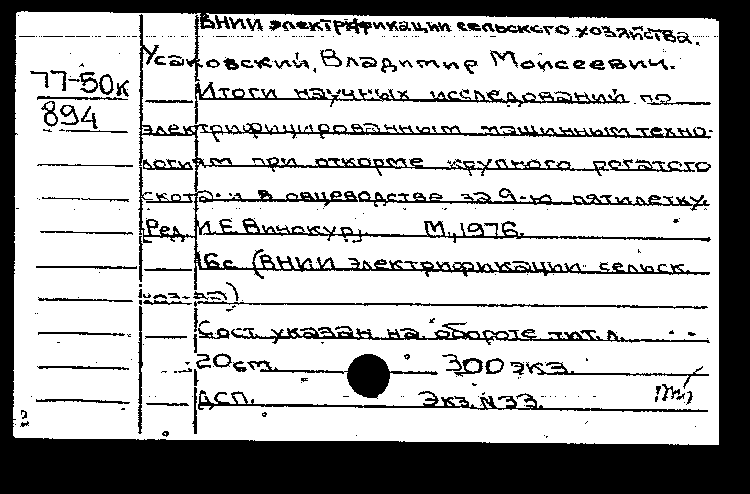 ВНИИ электрификации сельского хозяйства.
Усаковский, Владимир Моисеевич.
77-50к
894
Итоги научных исследований по
электрифицированным машинным техно-
логиям при откорме крупного рогатого
скота и в овцеводстве за 9-ю пятилетку.
[Ред. И.Е. Винокур]. М., 1976.
16с (ВНИИ электрификации сельск.
хоз-ва)
Сост. указан на обороте тит. л.
20см. 300 экз.
ДСП. Экз. N 33.